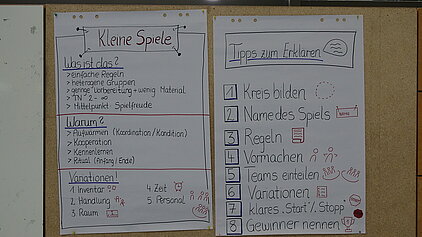 Kleine Spiele
Was ist das?
> einfache Regeln
> heterogene Gruppen
> geringe Vorbereitung + wenig Material
> TN 2 - ∞
> Mittelpunkt: Spielfreude
Warum?
> Aufwärmen (Koordination / Kondition)
> Kooperation
> Kennenlernen
> Ritual (Anfang / Ende)
Variationen!
1. Inventar
2. Handlung
3. Raum
4. Zeit
5. Personal
Tipps zum Erklären
1 Kreis bilden
2 Name des Spiels
3 Regeln
4 Vormachen
5 Teams einteilen
6 Variationen
7 klares "Start"/"Stopp"
8 Gewinner nennen